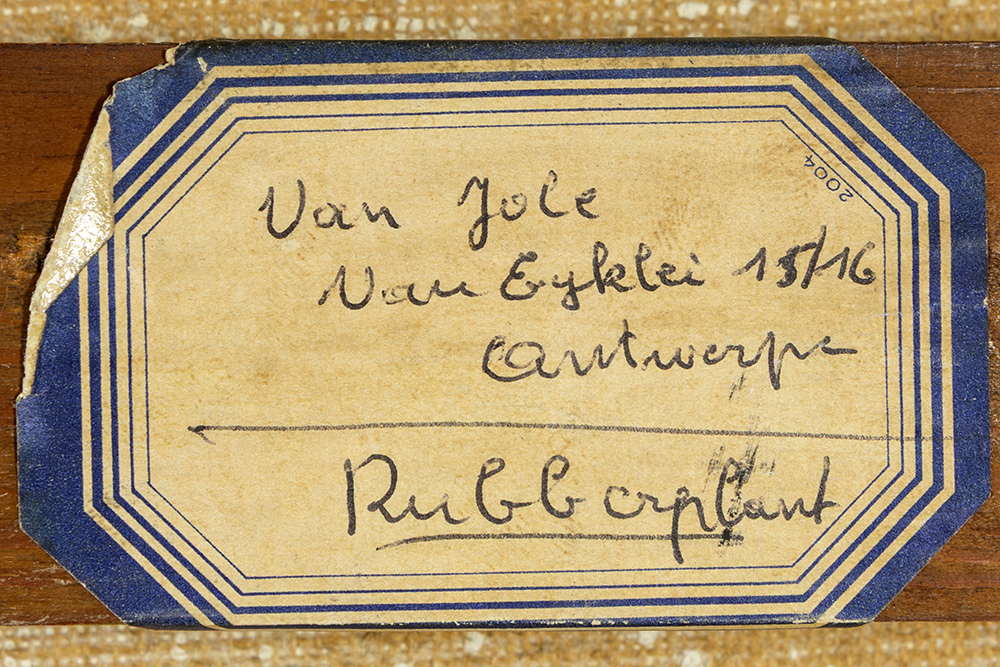 2004
Van Jole
Van Eyklei 15/16
Antwerpe
Rubberplant